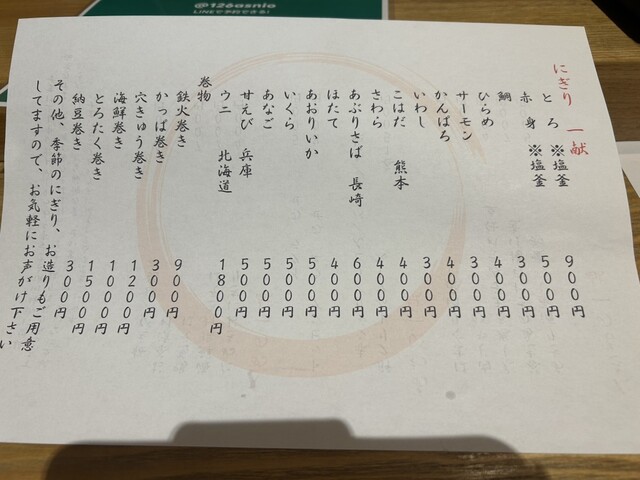 @126asnio
LINEで予約できる!
にぎり 一献
とろ ※塩釜 900円
赤身 ※塩釜 500円
鯛 300円
ひらめ 400円
サーモン 300円
かんぱち 400円
いわし 300円
こはだ 熊本 400円
さわら 400円
あぶりさば 長崎 600円
ほたて 400円
あおりいか 500円
いくら 500円
あなご 500円
甘えび 兵庫 500円
ウニ 北海道 1800円
巻物
鉄火巻き 900円
かっぱ巻き 300円
穴きゅう巻き 1200円
海鮮巻き 1000円
とろたく巻き 1500円
納豆巻き 300円
その他、季節のにぎり、お造りもご用意
してますので、お気軽にお声がけ下さい